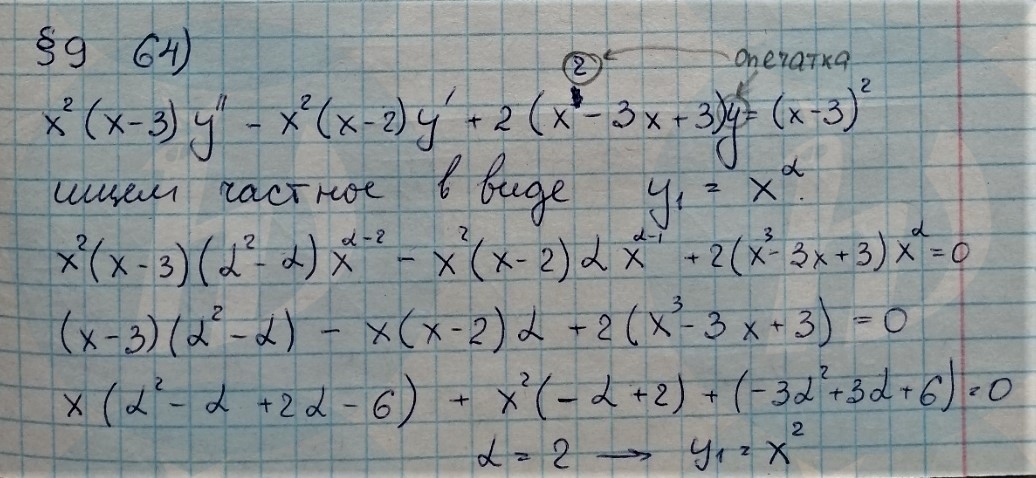 §9 64)
② опечатка
x²(x-3)y'' - x²(x-2)y' + 2(x - 3x+3)y = (x-3)²
ищем частное в виде y₁ = x^α.
x²(x-3)(α²-α)x^(α-2) - x²(x-2)αx^(α-1) + 2(x³-3x+3)x^α = 0
(x-3)(α²-α) - x(x-2)α + 2(x³-3x+3) = 0
x(α²-α+2α-6) + x²(-α+2) + (-3α²+3α+6) = 0
α = 2 → y₁ = x²